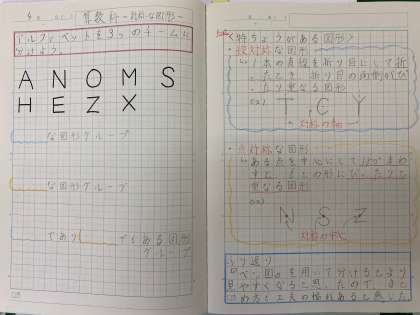 算数科 〜対称な図形〜
アルファベットを3つのチームに
分けよう。
A N O M S
H E Z X
な図形グループ
な図形グループ
であり でもある図形
グループ
特ちょうがある図形
・線対称な図形
1本の直線を折り目にして折
ったとき、折り目の両側がぴ
ったり重なる図形
T C Y
対称の軸
・点対称な図形
ある点を中心にして180°まわ
すと、もとの形にぴったりと
重なる図形
N S Z
対称の中心
ふり返り
ベン図を用いて分けるとより
見やすくなると思ったので、